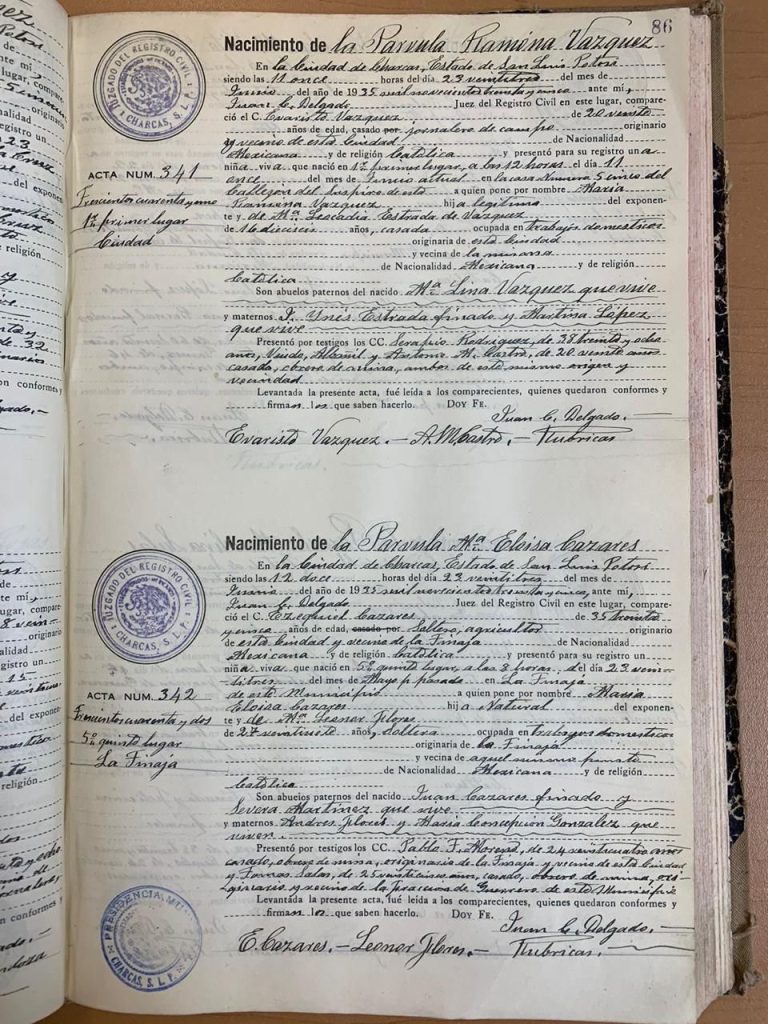 86
JUZGADO DEL REGISTRO CIVIL
CHARCAS, S. L. P.
Nacimiento de la Parvula Ramona Vazquez
En la Ciudad de Charcas, Estado de San Luis Potosí
siendo las 11 once horas del día 23 veintitres del mes de
Junio del año de 1935 mil novecientos treinta y cinco ante mí,
Juan C. Delgado Juez del Registro Civil en este lugar, compare-
ció el C. Evaristo Vazquez de 20 veinte
años de edad, casado por jornalero de campo originario
y vecino de esta Ciudad de Nacionalidad
Mexicana y de religión Católica y presentó para su registro una
niña viva que nació en 1er primer lugar, a las 12 horas el día 11
once del mes de Junio actual en la casa Número 5 cinco del
Callejon del Suspiro de esta a quien pone por nombre Maria
Ramona Vazquez hija legitima del exponen-
te y de Ma. Leocadia Estrada de Vazquez
de 16 dieciseis años, casada ocupada en trabajos domesticos
originaria de esta Ciudad
y vecina de la misma
de Nacionalidad Mexicana y de religión
Católica
Son abuelos paternos del nacido Ma. Lina Vazquez que vive
y maternos J. Ynés Estrada finado y Martina López
que vive
Presentó por testigos los CC. Serapio Rodriguez, de 38 treinta y ocho
años, Viudo, Albañil y Antonio M. Castro, de 20 veinte años
casado, obrero de mina, ambos de este mismo origen y
vecindad
Levantada la presente acta, fué leída a los comparecientes, quienes quedaron conformes y
firman los que saben hacerlo. DOY FE.
Juan C. Delgado.
Evaristo Vazquez. - A. M. Castro. - Rubricas
ACTA NUM. 341
Trescientos cuarenta y uno
1er primer lugar
Ciudad
JUZGADO DEL REGISTRO CIVIL
CHARCAS, S. L. P.
Nacimiento de la Parvula Ma. Eloisa Cazares
En la Ciudad de Charcas, Estado de San Luis Potosí
siendo las 12 doce horas del día 23 veintitres del mes de
Junio del año de 1935 mil novecientos treinta y cinco, ante mí,
Juan C. Delgado Juez del Registro Civil en este lugar, compare-
ció el C. Ezequiel Cazares de 35 treinta
y cinco años de edad, casado por Soltero, agricultor originario
de esta Ciudad y vecino de la Tinaja de Nacionalidad
Mexicana y de religión Católica y presentó para su registro un
niña viva que nació en 5o. quinto lugar, a las 3 horas, del día 23 vein-
titres del mes de Mayo p. pasado en La Tinaja
de este Municipio a quien pone por nombre Maria
Eloisa Cazares hija Natural del exponen-
te y de Ma. Leonor Flores
de 27 veintisiete años, soltera ocupada en trabajos domesticos
originaria de la Tinaja
y vecina de aquel mismo punto
de Nacionalidad Mexicana y de religión
Católica
Son abuelos paternos del nacido Juan Cazares finado y
Severa Martinez que vive
y maternos Andres Flores y Maria Concepción Gonzalez que
viven
Presentó por testigos los CC. Pablo F. Moreno, de 24 veinticuatro años
casado, obrero de mina, originario de la Tinaja y vecino de esta Ciudad
y Tomas Salas, de 25 veinticinco años, casado, obrero de mina, ori-
ginario y vecino de la fraccion de Guerrero de este Municipio
Levantada la presente acta, fué leída a los comparecientes, quienes quedaron conformes y
firman los que saben hacerlo. DOY FE.
Juan C. Delgado.
E. Cazares. - Leonor Flores. - Rubricas.
ACTA NUM. 342
Trescientos cuarenta y dos
5o. quinto lugar
La Tinaja
PRESIDENCIA
CHARCAS, S. L. P.